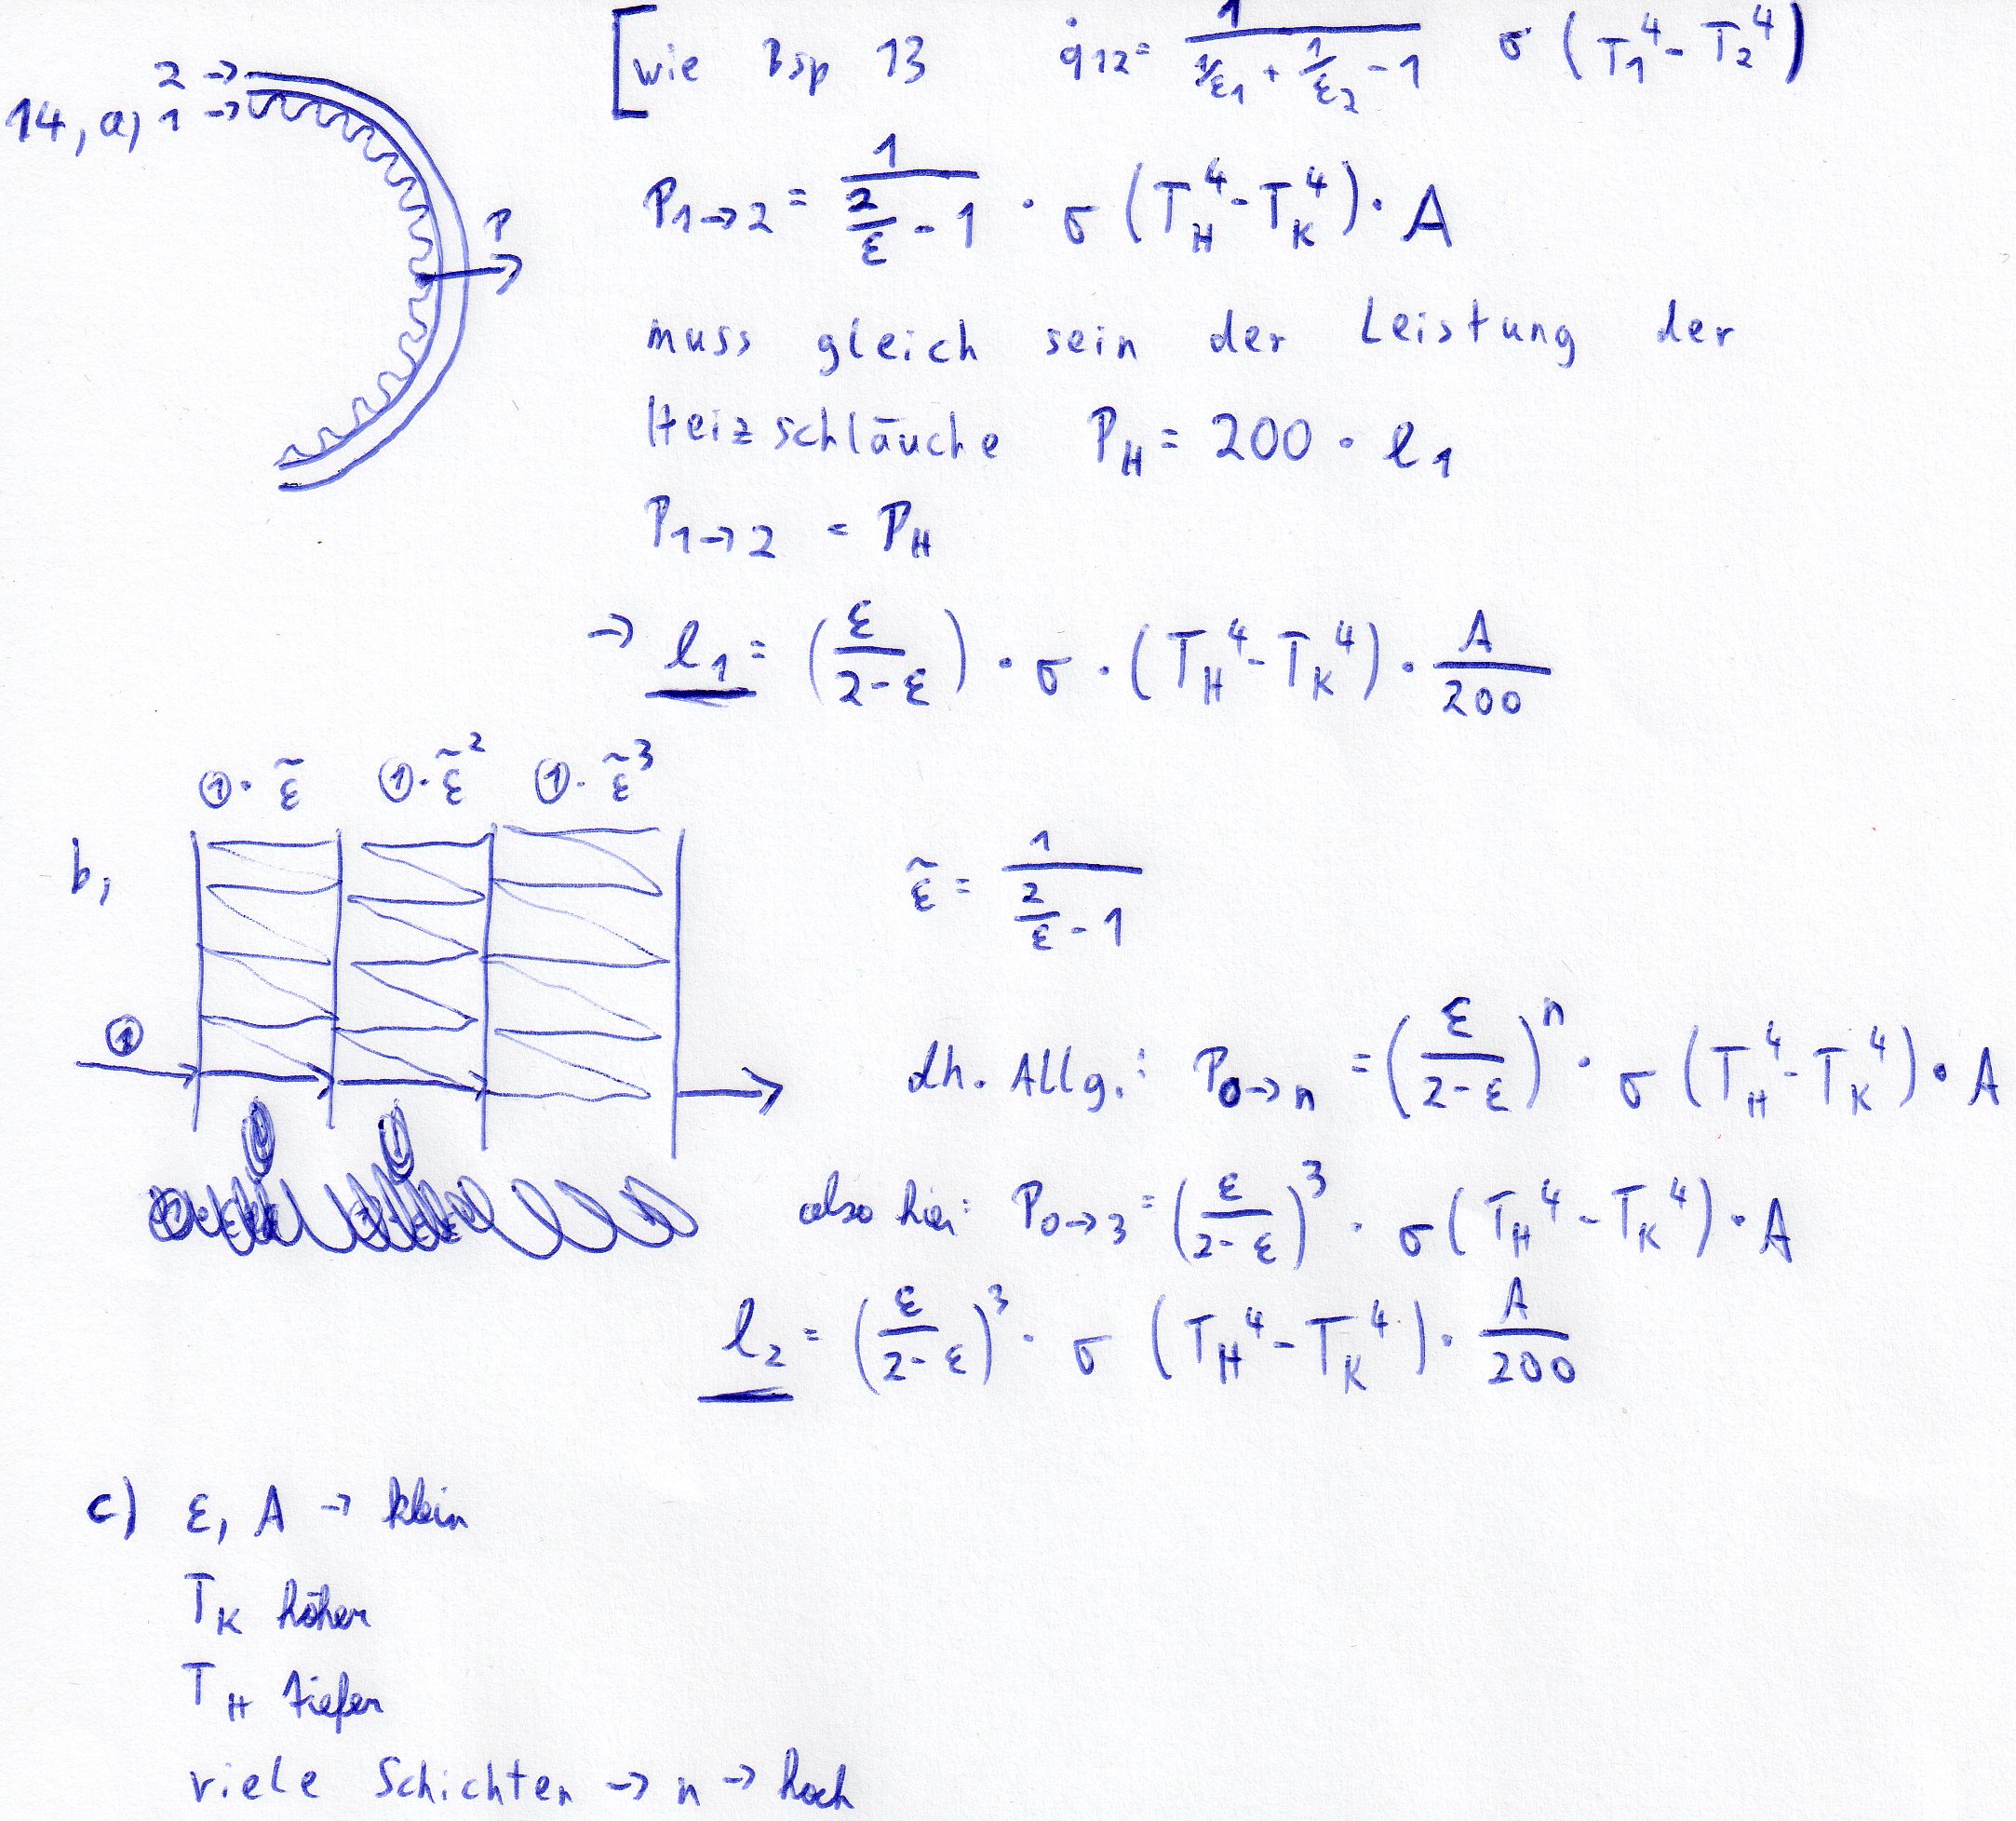 [wie Bsp 13 q̇12 = 1/(1/ε1 + 1/ε2 - 1) σ (T1^4 - T2^4)
2 →
14, a, 1 →
P
P1→2 = 1/(2/ε - 1) · σ (TH^4 - TK^4) · A
muss gleich sein der Leistung der
Heizschläuche PH = 200 · l1
P1→2 = PH
→ l1 = (ε/(2-ε)) · σ · (TH^4 - TK^4) · A/200
① · ε̃ ① · ε̃^2 ① · ε̃^3
b,
ε̃ = 1/(2/ε - 1)
①
dh. Allg.: P0→n = (ε/(2-ε))^n · σ (TH^4 - TK^4) · A
also hier: P0→3 = (ε/(2-ε))^3 · σ (TH^4 - TK^4) · A
l2 = (ε/(2-ε))^3 · σ (TH^4 - TK^4) · A/200
c) ε, A → klein
TK höher
TH tiefer
viele Schichten → n → hoch